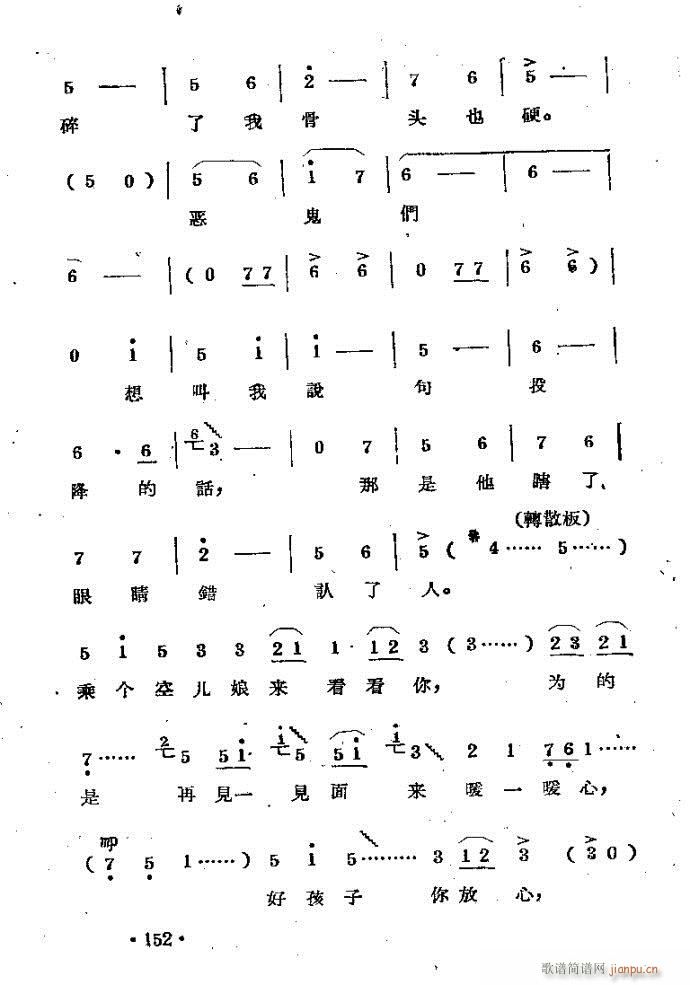 5 — | 5 6 | 2 — | 7 6 | 5 — |
碎 了我骨 头也硬。
(5 0) | 5 6 | i 7 | 6 — | 6 — |
恶 鬼 們
6 — | (0 77 | 6 6 | 0 77 | 6 6) |
0 i | 5 i | i — | 5 — | 6 — |
想 叫 我 說 句 投
6 · 6 | 6 3 — | 0 7 | 5 6 | 7 6 |
降 的 話, 那 是 他 瞎 了
(轉散板)
7 7 | 2 — | 5 6 | 5 ( 4…… 5……)
眼 睛 錯 認 了 人。
5 i 5 3 3 21 1· 12 3 (3……) 23 21
乘 个 空 儿 娘 来 看 看 你, 为 的
7…… 2 5 5i i 5 5i i 3 2 1 76 1……
是 再 見 一 見 面 来 暖 一 暖 心,
(7 5 1……) 5 i 5……… 3 12 3 (3 0)
好 孩 子 你 放 心,
·152·
歌谱简谱网 jianpu.cn